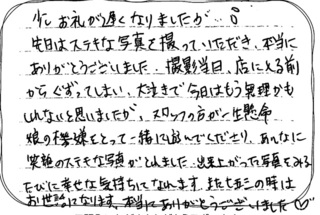 少しお礼が遅くなりましたが…
先日はステキな写真を撮っていただき、本当に
ありがとうございました。撮影当日、店に入る前
からぐずってしまい、大泣きで今日はもう無理かも
しれないと思いましたが、スタッフの方が一生懸命
娘の機嫌をとって一緒に遊んでくださり、あんなに
笑顔のステキな写真がとれました。出来上がった写真をみる
たびに幸せな気持ちになります。また七五三の時は
お世話になります。本当にありがとうございました♡